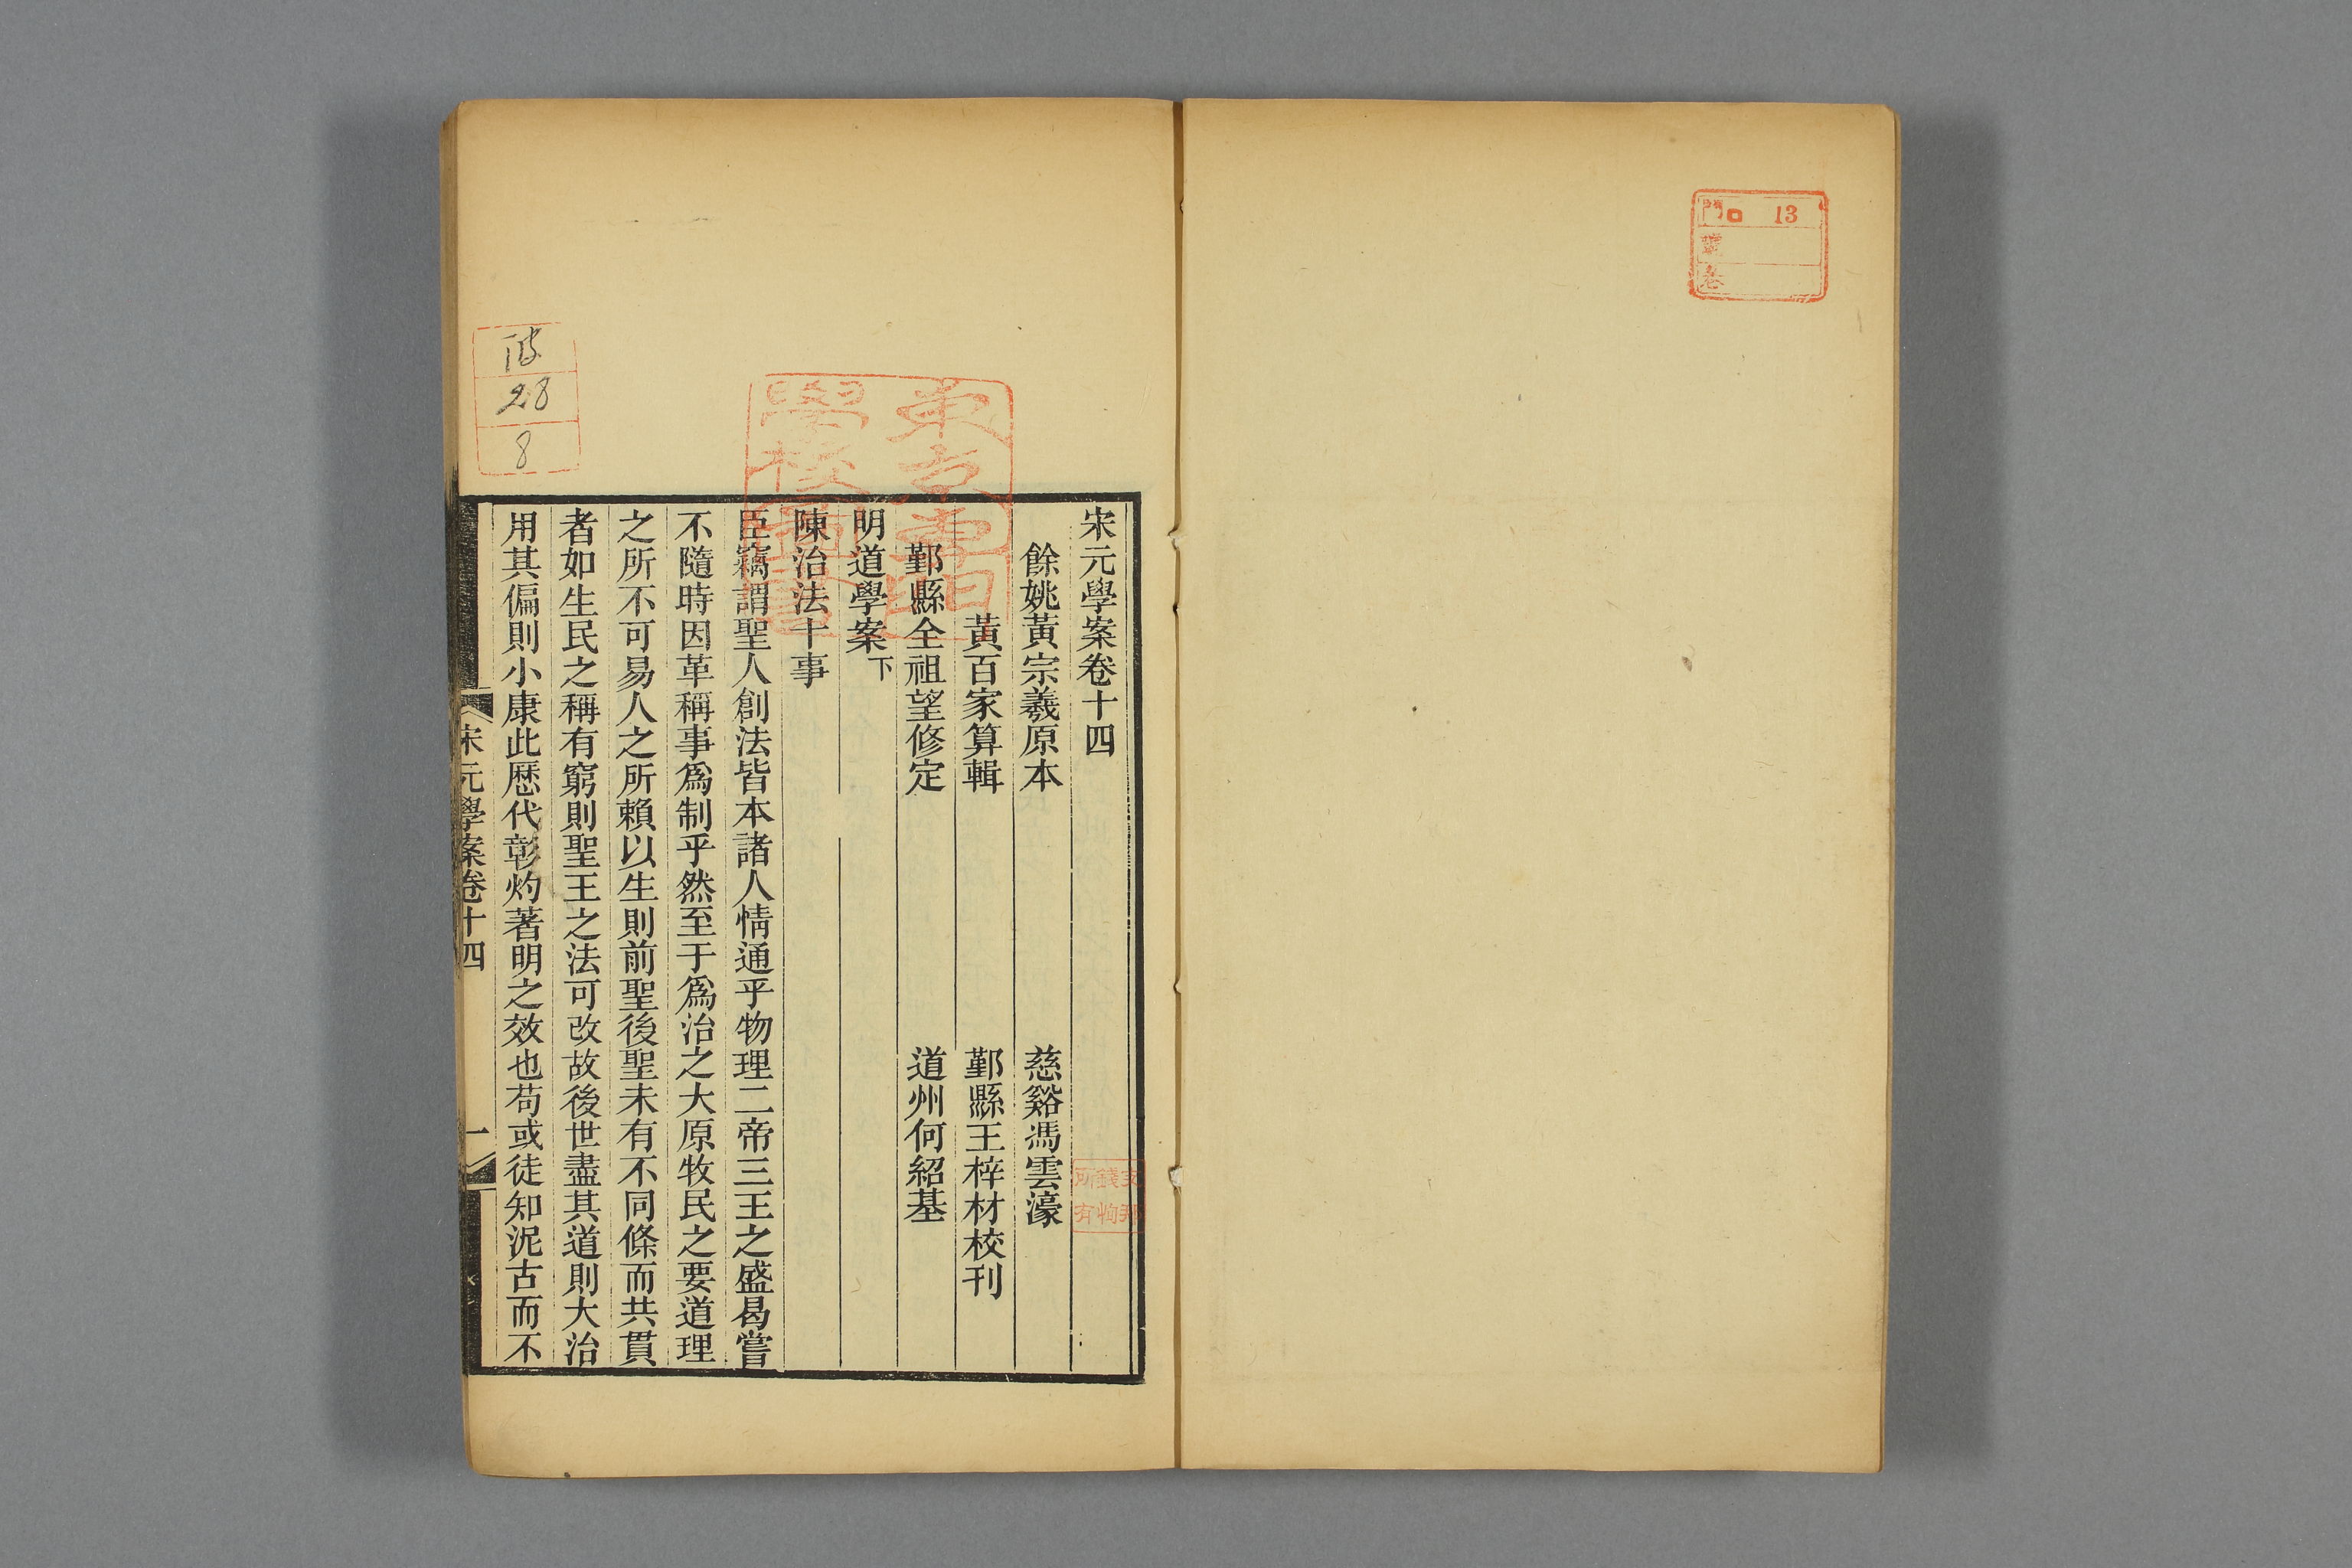 門 ロ 13
卷
宋元學案卷十四
餘姚黃宗羲原本 慈谿馮雲濠
黃百家纂輯 鄞縣王梓材校刊
鄞縣全祖望修定 道州何紹基
明道學案下
陳治法十事
臣竊謂聖人創法皆本諸人情通乎物理二帝三王之盛曷嘗
不隨時因革稱事爲制乎然至于爲治之大原牧民之要道理
之所不可易人之所賴以生則前聖後聖未有不同條而共貫
者如生民之稱有窮則聖王之法可改故後世盡其道則大治
用其偏則小康此歷代彰灼著明之效也苟或徒知泥古而不
宋元學案卷十四
一
東方書
學校圖
28
8